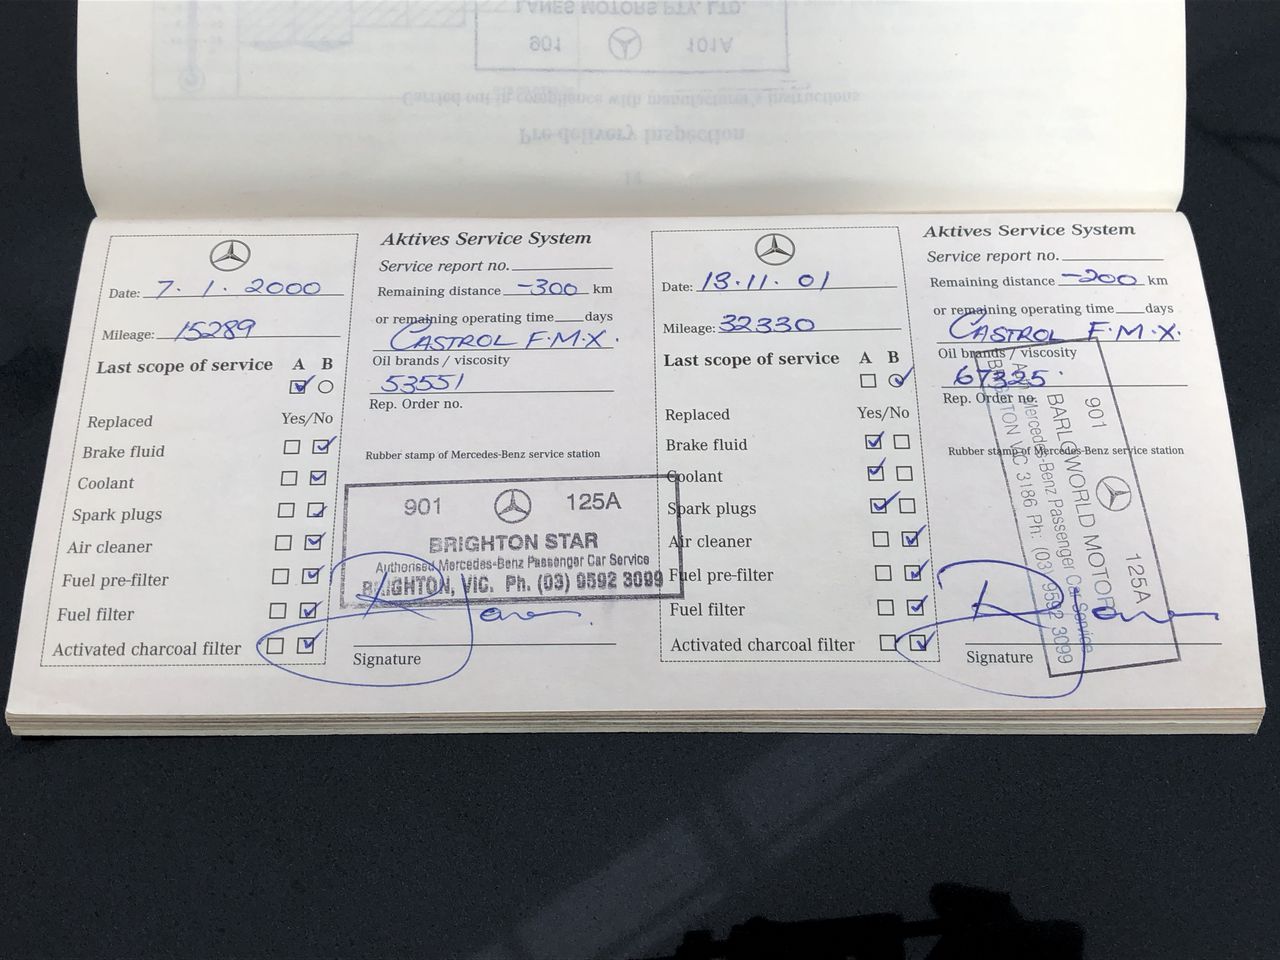 LANES MOTORS PTY. LTD.
901 101A
Carried out in compliance with manufacturer's instructions
Pre-delivery Inspection
14
Date: 7. 1. 2000
Mileage: 15289
Last scope of service A B
Replaced Yes/No
Brake fluid
Coolant
Spark plugs
Air cleaner
Fuel pre-filter
Fuel filter
Activated charcoal filter
Aktives Service System
Service report no.
Remaining distance -300 km
or remaining operating time days
CASTROL F.M.X.
Oil brands / viscosity
53551
Rep. Order no.
Rubber stamp of Mercedes-Benz service station
901 125A
BRIGHTON STAR
Authorised Mercedes-Benz Passenger Car Service
BRIGHTON, VIC. Ph. (03) 9592 3099
Signature
Date: 13.11.01
Mileage: 32330
Last scope of service A B
Replaced Yes/No
Brake fluid
Coolant
Spark plugs
Air cleaner
Fuel pre-filter
Fuel filter
Activated charcoal filter
Aktives Service System
Service report no.
Remaining distance -200 km
or remaining operating time days
CASTROL F.M.X.
Oil brands / viscosity
67325
Rep. Order no.
Rubber stamp of Mercedes-Benz service station
901 125A
BARLOWORLD MOTOR
Mercedes-Benz Passenger Car Service
BRIGHTON VIC 3186 Ph: (03) 9592 3099
Signature